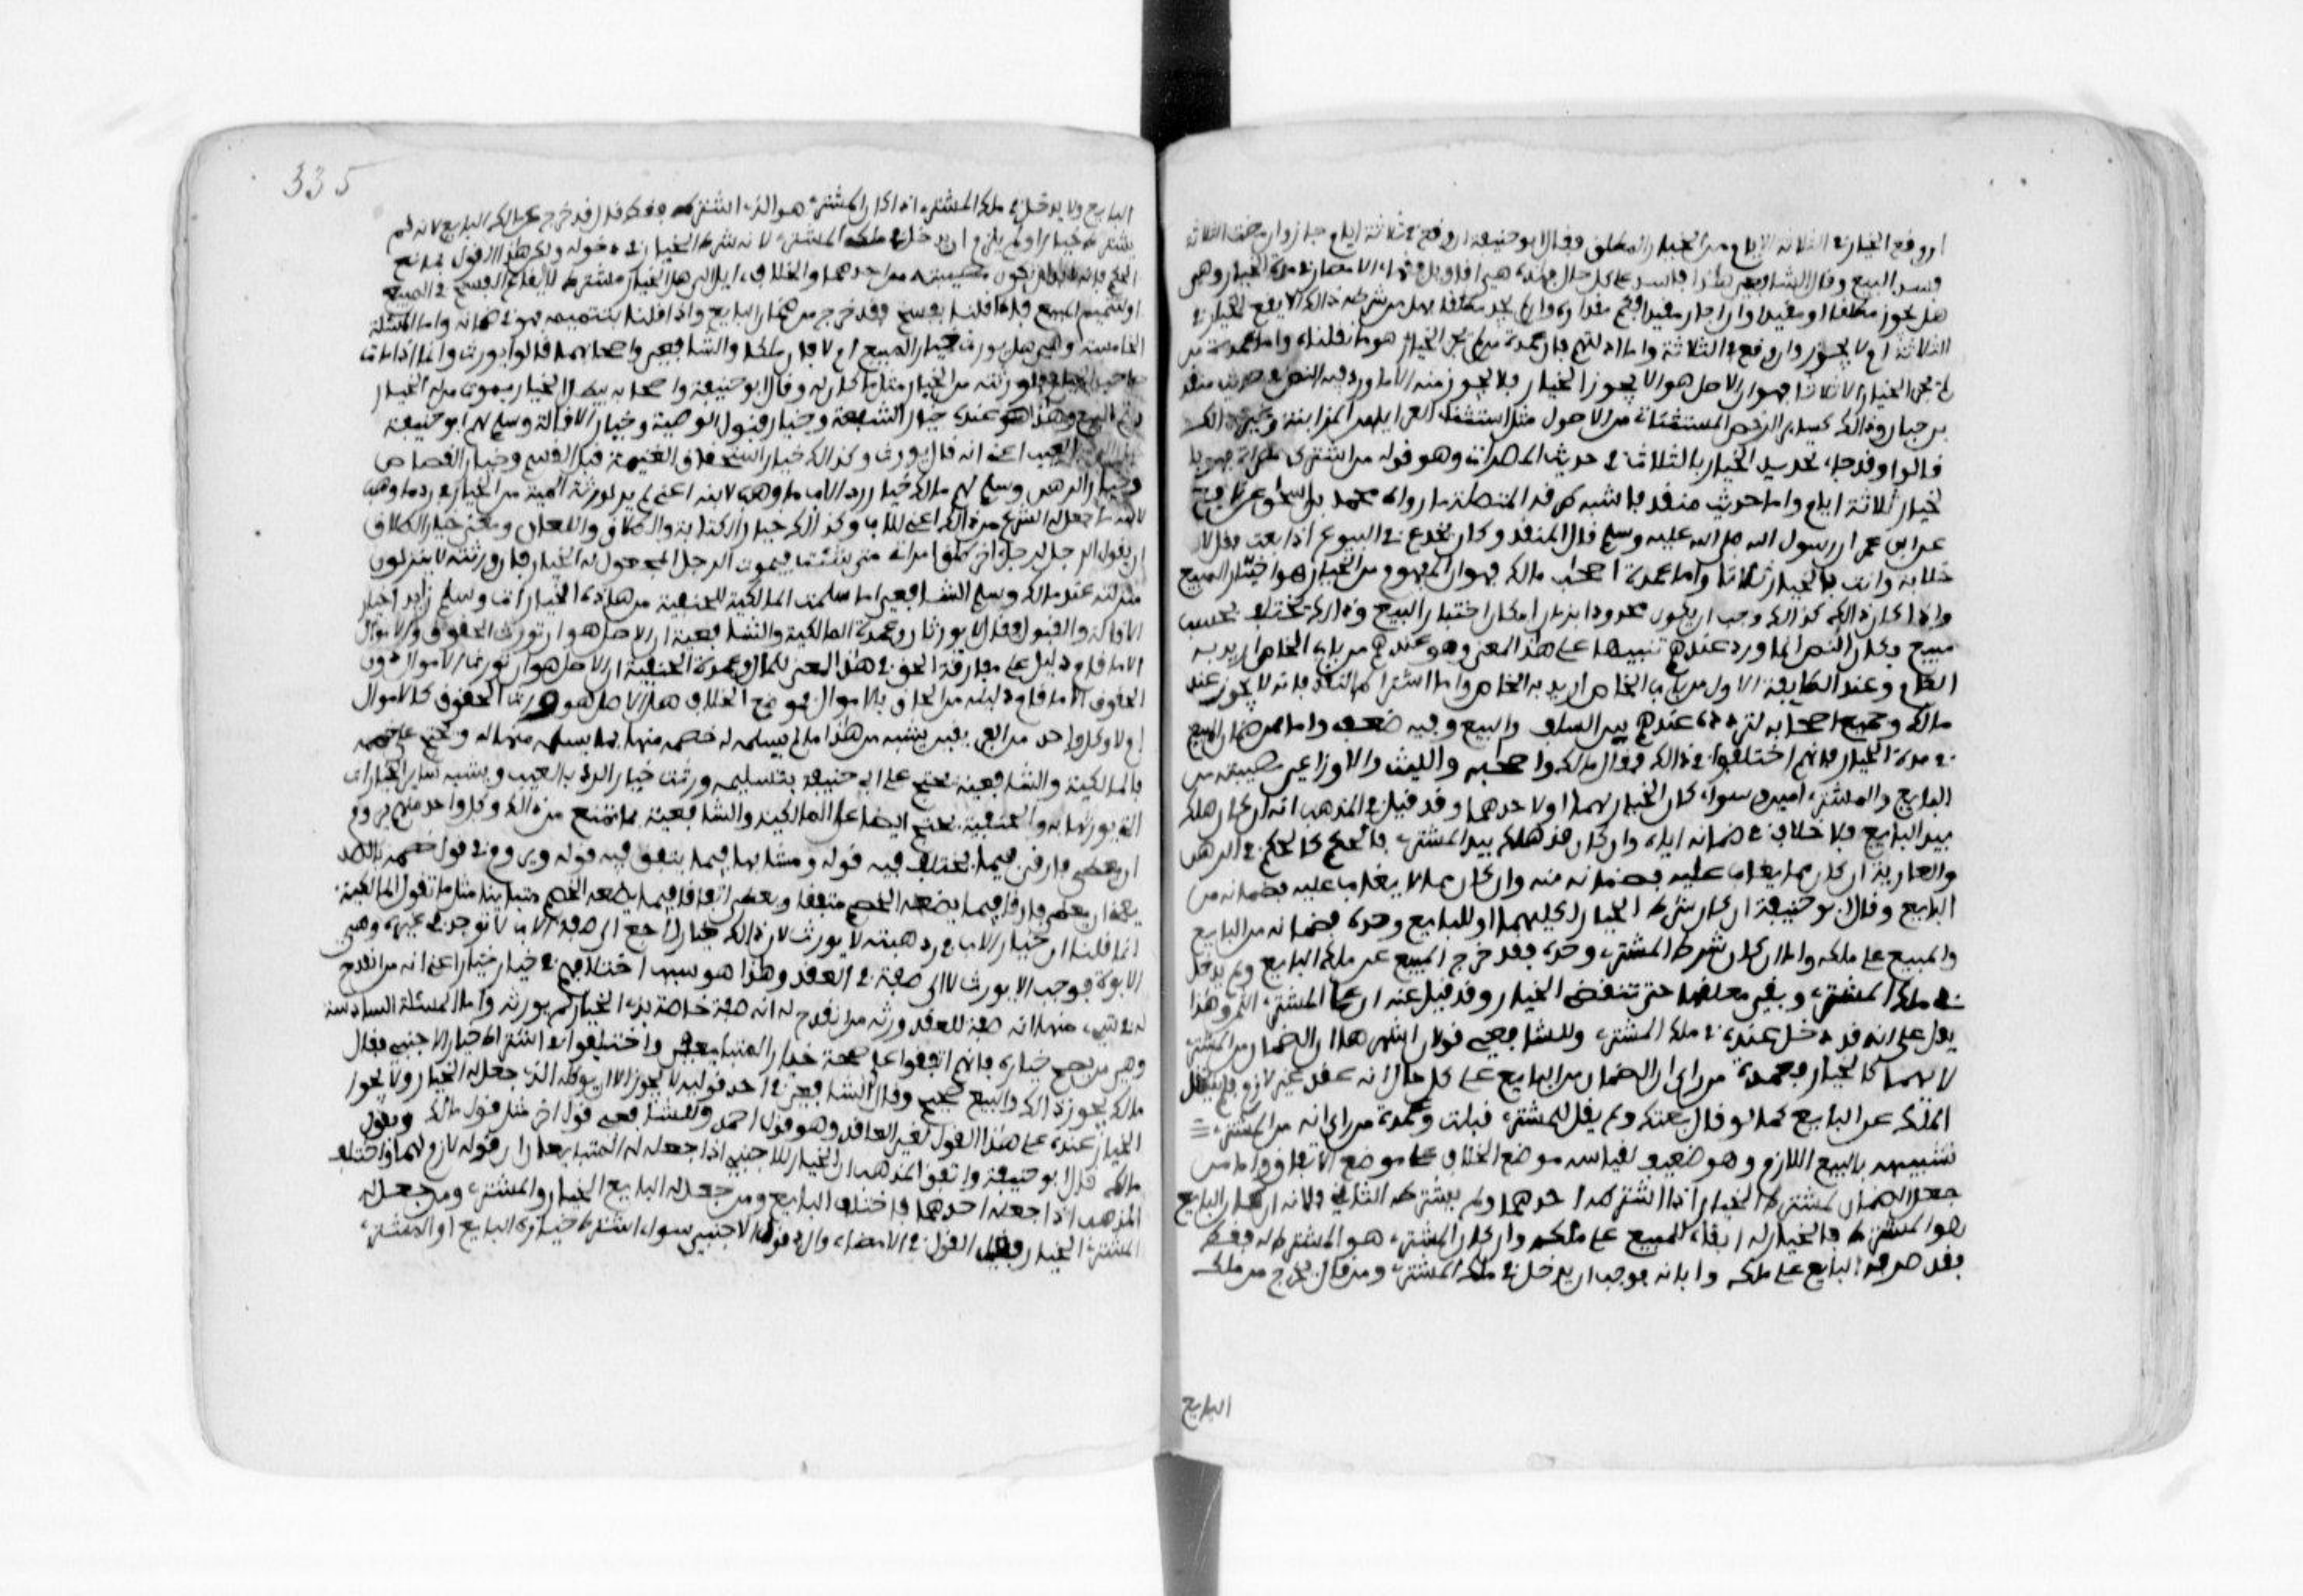 ان وقع الخيار في الثلاثة الايام زمن الخيار المطلق فقال ابو حنيفة ان وقع في ثلاثة ايام جاز وان مضت الثلاثة
فسد البيع وقال الشافعي هذا فاسد على كل حال فهذه هي اقاويل فقهاء الامصار في مدة الخيار وهي
هل يجوز مطلقا او مقيدا وان جاز مقيدا فكم مقداره وان لم يجز مطلقا فهل من شرط ذلك ألا يقع الخيار في
الثلاث ام لا يجوز وان وقع في الثلاثة واما ادلتهم فان عمدة من لم يجز الخيار هو ما قلناه واما عمدة من
لم يجز الخيار الا ثلاثا فهو ان الاصل هو الا يجوز الخيار فلا يجوز منه الا ما ورد فيه النص في حديث منقذ
بن حبان وذلك كساير الرخص المستثناة من الاصول مثل استثناء العرايا من المزابنة وغير ذلك
قالوا وقد جاء تحديد الخيار بالثلاث في حديث المصراة وهو قوله من اشترى مصراة فهو با
لخيار ثلاثة ايام واما حديث منقذ فاشبه طرقه المتصلة ما رواه محمد بن اسحاق عن نافع
عن ابن عمر ان رسول الله صلى الله عليه وسلم قال لمنقذ وكان يخدع في البيوع اذا بعت فقل لا
خلابة وانت بالخيار ثلاثا واما عمدة اصحاب مالك فهو ان المفهوم من الخيار هو اختبار المبيع
واذا كان ذلك كذلك وجب ان يكون محدودا بزمان امكان اختبار المبيع وذلك يختلف بحسب
مبيع فكان النص انما ورد عندهم تنبيها على هذا المعنى وهو عندهم من باب الخاص اريد به
العام وعند الطايفة الاولى من باب الخاص اريد به الخاص واما اشتراط النقد فانه لا يجوز عند
مالك وجميع اصحابه لتردده عندهم بين السلف والبيع وفيه ضعف واما ممن ضمان المبيع
في مدة الخيار فانهم اختلفوا في ذلك فقال مالك واصحابه والليث والاوزاعي مصيبته من
البايع والمشتري امين سواء كان الخيار لهما او لاحدهما وقد قيل في المذهب انه ان كان هلك
بيد البايع فلا خلاف في ضمانه اياه وان كان قد هلك بيد المشتري فالحكم كالحكم في الرهن
والعارية ان كان مما يغاب عليه فضمانه منه وان كان مما لا يغاب عليه فضمانه من
البايع وقال ابو حنيفة ان كان شرط الخيار لكليهما او للبايع وحده فضمانه من البايع
والمبيع على ملكه واما ان كان شرط المشتري وحده فقد خرج المبيع عن ملك البايع ولم يدخل
في ملك المشتري وبقي معلقا حتى تنقضي الخيار وقد قيل عنه ان على المشتري الثمن وهذا
يدل على انه قد دخل عنده في ملك المشتري وللشافعي قولان اشهرهما ان الضمان من المشتري
لايهما كان الخيار فعمدة من راى ان الضمان من البايع على كل حال انه عقد غير لازم فلم ينتقل
الملك عن البايع كما لو قال بعتك ولم يقل المشتري قبلت وعمدة من راى انه من المشتري
تشبيهه بالبيع اللازم وهو ضعيف لقياس موضع الخلاف على موضع الاتفاق واما من
جعل الضمان لمشترط الخيار اذا اشترطه احدهما ولم يشترطه الثاني فلانه ان كان البايع
هو المشترط فالخيار له ابقاء للمبيع على ملكه وان كان المشتري هو المشترط له فقط
فقد صرفه البايع على ملكه وابانه فوجب ان يدخل في ملك المشتري ومن قال خرج من ملك
البايع
335
البايع ولا يدخل في ملك المشتري اذا كان المشتري هو الذي اشترط فقط قال قد خرج عن ملك البايع لانه لم
يشترط خيارا ولم يلزم ان يدخل في ملك المشتري لانه شرط الخيار في دخوله ولكن هذا القول يمانع
الحكم فانه لابد ان تكون مصيبته من احدهما والخلاف ايل الى هل الخيار مشترط لايقاع الفسخ في المبيع
او لتتميم المبيع فاذا قلنا بفسخ فقد خرج من ضمان البايع وان قلنا بتتميمه فهو في ضمانه واما المسئلة
الخامسة وهي هل يورث خيار المبيع ام لا فان مالكا والشافعي واصحابهما قالوا يورث وانه اذا مات
صاحب الخيار فلورثته من الخيار مثل ما كان له وقال ابو حنيفة واصحابه يبطل الخيار بموت من له الخيار
ويتم البيع وهكذا هو عنده خيار الشفعة وخيار قبول الوصية وخيار الاقالة وسلم لهم ابو حنيفة
خيار الرد بالعيب اعني انه قال يورث وكذلك خيار استحقاق الغنيمة قبل القسم وخيار القصاص
وخيار الرهن وسلم لهم مالك خيار رد الاب ما وهب لابنه اعني لم ير لورثة الميت من الخيار في رد ما وهب
لابنه ما جعله الشرع من ذلك اعني للاب وكذلك خيار الكتابة والطلاق واللعان ومعنى خيار الطلاق
ان يقول الرجل لرجل اخر طلق امراتي متى شئت فيموت الرجل المجعول له الخيار فان ورثته لا يتنزلون
منزلته عند مالك وسلم الشافعي ما سلمت المالكية للحنفية من هذه الخيارات وسلم زايدا خيار
الاقالة والقبول فقال لا يورثان وعمدة المالكية والشافعية ان الاصل هو ان تورث الحقوق والاموال
الا ما قام دليل على مفارقة الحق في هذا المعنى للمال وعمدة الحنفية ان الاصل هو ان تورث الاموال دون
الحقوق الا ما قام دليله من الحاق بالاموال فموضع الخلاف هل الاصل هو ورث الحقوق كالاموال
ام لا وكل واحد من الفريقين يشبه من هذا ما لم يسلمه له خصمه منها بما يسلمه منها له ويحتج على خصمه
فالمالكية والشافعية تحتج على ابي حنيفة بتسليمه ورثت خيار الرد بالعيب ويشبه ساير الخيارات
التي يورثها به والحنفية تحتج ايضا على المالكية والشافعية بما تمنع من ذلك وكل واحد منهم يروم
ان يعطي فارق فيما يختلف فيه قوله ومشابها فيما يتفق فيه قوله ويروم في قول خصمه بالضد
يعني ان يعطي فارقا فيما يضعه الخصم متفقا ويعطي اتفاقا فيما يضعه الخصم متباينا مثل ما تقول المالكية
انما قلنا ان خيار الاب في رد هبته لا يورث لان ذلك خيار راجع الى صفة في الاب لا توجد في غيره وهي
الابوة فوجب الا يورث لا الى صفة في العقد وهذا هو سبب اختلافهم في خيار خيار اعني انه من انقدح
له في شيء منها انه صفة للعقد ورثه من انقدح له انه صفة خاصة بذي الخيار لم يورثه واما المسئلة السادسة
وهي من يصح خياره فانهم اتفقوا على صحة خيار المتبايعين واختلفوا في اشتراط خيار الاجنبي فقال
مالك يجوز ذلك والبيع صحيح وقال الشافعي في احد قوليه لا يجوز الا ان يوكله الذي جعل له الخيار ولا يجوز
الخيار عنده على هذا القول لغير العاقد وهو قول احمد وللشافعي قول اخر مثل قول مالك وبقول
مالك قال ابو حنيفة واتفق المذهب ان الخيار للاجنبي اذا جعله له المتبايعان ان قوله لازم لهما واختلف
المذهب اذا جعله احدهما فاختلف البايع ومن جعل له البايع الخيار والمشتري ومن جعل له
المشتري الخيار فقيل القول في الامضاء والرد قول الاجنبي سواء اشترط خياره البايع او المشتري